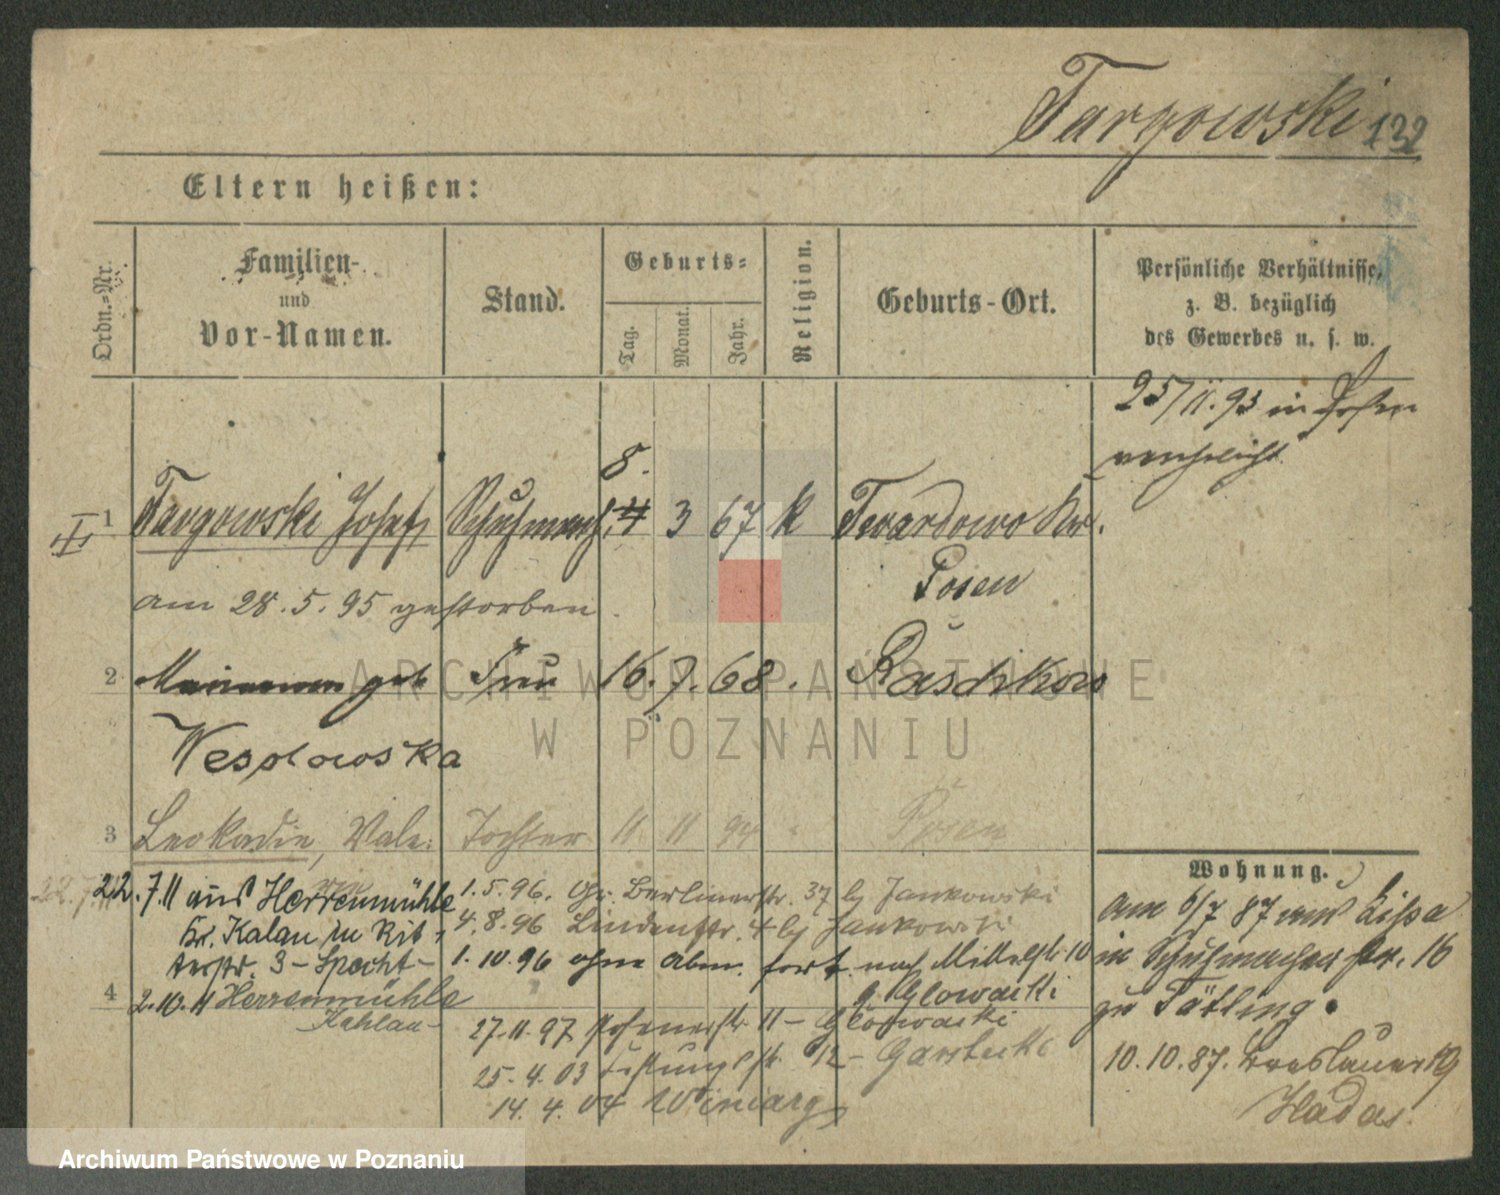 Targowski 132
Eltern heißen:
Ordn.-Nr.
Familien-
und
Vor-Namen.
Stand.
Geburts-
Tag.
Monat.
Jahr.
Religion.
Geburts-Ort.
Persönliche Verhältnisse,
z. B. bezüglich
des Gewerbes u. s. w.
25/11.93 in Posen
verehelicht
8.
1 Targowski Josef Schuhmach. 3 67 k Twardowo Kr.
Posen
am 28.5.95 gestorben
2 geb Frau 16. 7. 68. Raschkow
Wesolowska
3 Leokadie, Vale: Tochter 11. 11 94 Posen
22.7.11 aus Herrenmühle
Kr. Kalau in Rit-
terstr. 3 - Specht-
4 2.10.11 Herrenmühle
Kahlau-
1.5.96. Gr. Berlinerstr. 37 b/ Jankowski
4.8.96 Lindenstr. 4 b/ Jankowski
1.10.96 ohne Abm. fort. nach Mittelstr 10
Glowacki
27.11.97 Posenerstr. 11 - Glowacki
25.4.03 12 -
14.4.04 Winiary
Wohnung.
am 6/7 87 aus Lissa
in Schuhmacher str. 16
zu
10.10.87. Breslauer 19
Hadas.
ARCHIWUM PAŃSTWOWE
W POZNANIU
Archiwum Państwowe w Poznaniu